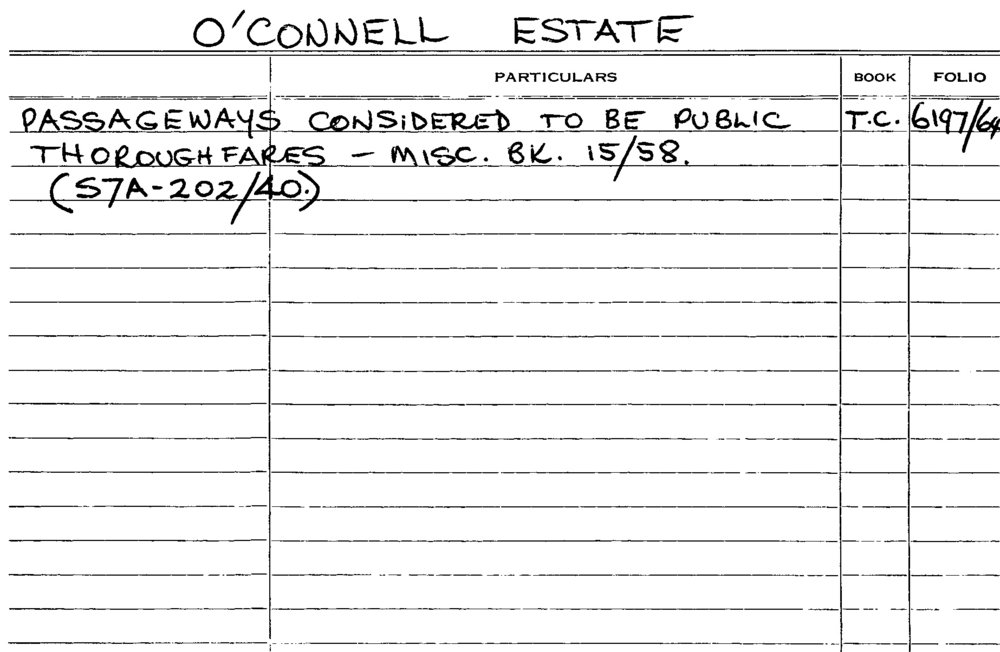 O'CONNELL ESTATE
PARTICULARS BOOK FOLIO
PASSAGEWAYS CONSIDERED TO BE PUBLIC T.C. 6197/64
THOROUGHFARES - MISC. BK. 15/58.
(S7A-202/40.)